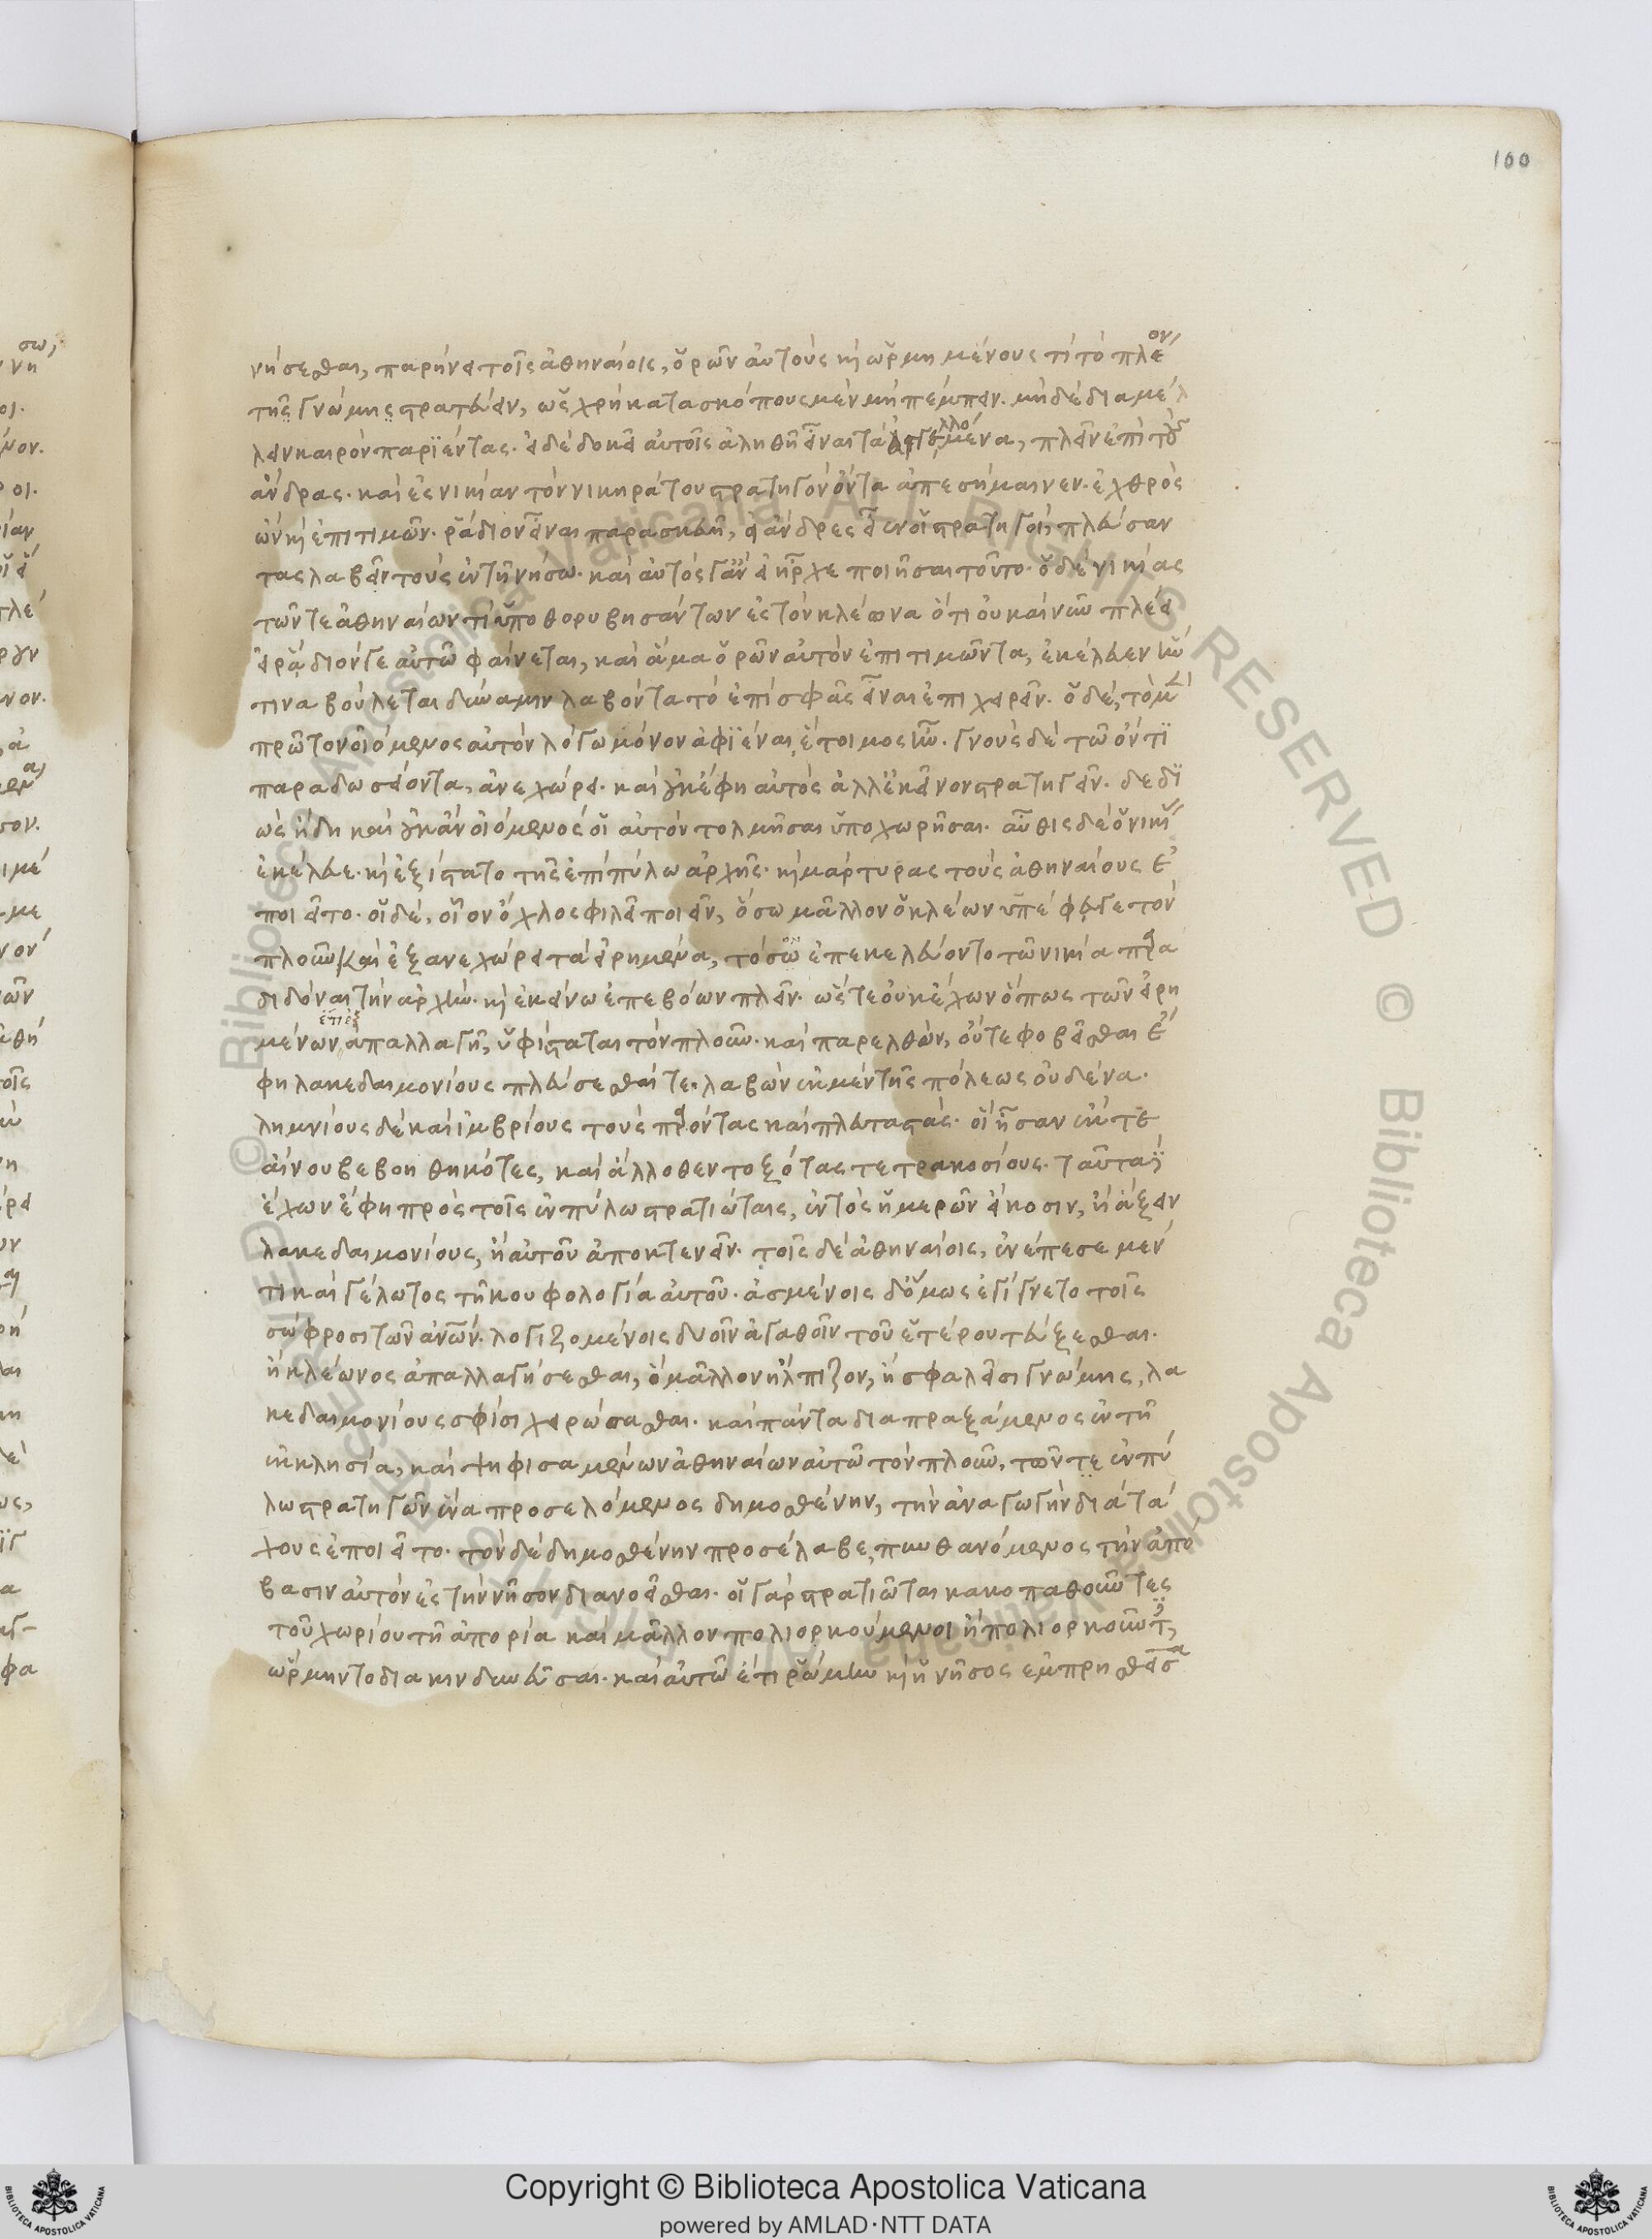 100
νήσεσθαι, παρήνει τοῖς ἀθηναίοις, ὁρῶν αὐτοὺς καὶ ὡρμημένους τὶ τὸ πλέον
τῆς γνώμης στρατεύειν, ὡς χρὴ κατασκόπους μὲν μὴ πέμπειν. μηδὲ διαμέλ
λειν καιρὸν παριέντας. εἰ δὲ δοκεῖ αὐτοῖς ἀληθῆ εἶναι τὰ ἀγγελλόμενα, πλεῖν ἐπὶ τοὺς
ἄνδρας. καὶ ἐς νικίαν τὸν νικηράτου στρατηγὸν ὄντα ἀπεσήμαινεν. ἐχθρὸς
ὢν καὶ ἐπιτιμῶν. ῥάδιον εἶναι παρασκευῇ, εἰ ἄνδρες εἶεν οἱ στρατηγοὶ, πλεύσαν
τας λαβεῖν τοὺς ἐν τῇ νήσω. καὶ αὐτὸς γ' ἂν εἰ ἦρχε ποιῆσαι τοῦτο. ὁ δὲ νικίας
τῶν τε ἀθηναίων τὶ ὑποθορυβησάντων ἐς τὸν κλέωνα ὅτι οὐ καὶ νῦν πλεῖ
εἰ ῥάδιόν γε αὐτῶ φαίνεται, καὶ ἅμα ὁρῶν αὐτὸν ἐπιτιμῶντα, ἐκέλευεν ἥν
τινα βούλεται δύναμιν λαβόντα τὸ ἐπὶ σφᾶς εἶναι ἐπιχειρεῖν. ὁ δὲ, τὸ μὲν
πρῶτον οἰόμενος αὐτὸν λόγω μόνον ἀφιέναι, ἑτοῖμος ἦν. γνοὺς δὲ τῶ ὄντι
παραδωσείοντα, ἀνεχώρει. καὶ οὐκ ἔφη αὐτὸς ἀλλ' ἐκεῖνον στρατηγεῖν. δεδι
ὼς ἤδη καὶ οὐκ ἂν οἰόμενός οἱ αὐτὸν τολμῆσαι ὑποχωρῆσαι. αὖθις δὲ ὁ νικίας
ἐκέλευε. καὶ ἐξίστατο τῆς ἐπὶ πύλω ἀρχῆς. καὶ μάρτυρας τοὺς ἀθηναίους ἐ
ποιεῖτο. οἱ δὲ, οἷον ὄχλος φιλεῖ ποιεῖν, ὅσω μᾶλλον ὁ κλέων ὑπέφευγε τὸν
πλοῦν καὶ ἐξανεχώρει τὰ εἰρημένα, τόσω ἐπεκελεύοντο τῶ νικία παρα
διδόναι τὴν ἀρχὴν. καὶ ἐκείνω ἐπεβόων πλεῖν. ὥστε οὐκ ἔχων ὅπως τῶν εἰρη
μένων ἔτι ἐξ
ἀπαλλαγῆ, ὑφίσταται τὸν πλοῦν. καὶ παρελθὼν, οὔτε φοβεῖσθαι ἔ
φη λακεδαιμονίους πλεύσεσθαί τε. λαβὼν ἐκ μὲν τῆς πόλεως οὐδένα.
λημνίους δὲ καὶ ἰμβρίους τοὺς παρόντας καὶ πελταστὰς. οἳ ἦσαν ἔκ τε
αἴνου βεβοηθηκότες, καὶ ἄλλοθεν τοξότας τετρακοσίους. ταῦτα
ἔχων ἔφη πρὸς τοῖς ἐν πύλω στρατιώταις, ἐντὸς ἡμερῶν εἴκοσιν, ἢ ἄξειν
λακεδαιμονίους, ἢ αὐτοῦ ἀποκτενεῖν. τοῖς δὲ ἀθηναίοις, ἐνέπεσε μέν
τι καὶ γέλωτος τῆ κουφολογία αὐτοῦ. ἀσμένοις δ' ὅμως ἐγίγνετο τοῖς
σώφροσι τῶν ἀνων. λογιζομένοις δυοῖν ἀγαθοῖν τοῦ ἑτέρου τεύξεσθαι.
ἢ κλέωνος ἀπαλλαγήσεσθαι, ὃ μᾶλλον ἤλπιζον, ἢ σφαλεῖσι γνώμης, λα
κεδαιμονίους σφίσι χειρώσασθαι. καὶ πάντα διαπραξάμενος ἐν τῆ
ἐκκλησία, καὶ ψηφισαμένων ἀθηναίων αὐτῶ τὸν πλοῦν, τῶν τε ἐν πύ
λω στρατηγῶν ἕνα προσελόμενος δημοσθένην, τὴν ἀναγωγὴν διὰ τά
χους ἐποιεῖτο. τὸν δὲ δημοσθένην προσέλαβε, πυνθανόμενος τὴν ἀπό
βασιν αὐτὸν ἐς τὴν νῆσον διανοεῖσθαι. οἱ γὰρ στρατιῶται κακοπαθοῦντες
τοῦ χωρίου τῆ ἀπορία καὶ μᾶλλον πολιορκούμενοι ἢ πολιορκοῦντες,
ὥρμηντο διακινδυνεῦσαι. καὶ αὐτῶ ἔτι ῥώμην καὶ ἡ νῆσος ἐμπρησθεῖσα
Copyright © Biblioteca Apostolica Vaticana
powered by AMLAD·NTT DATA